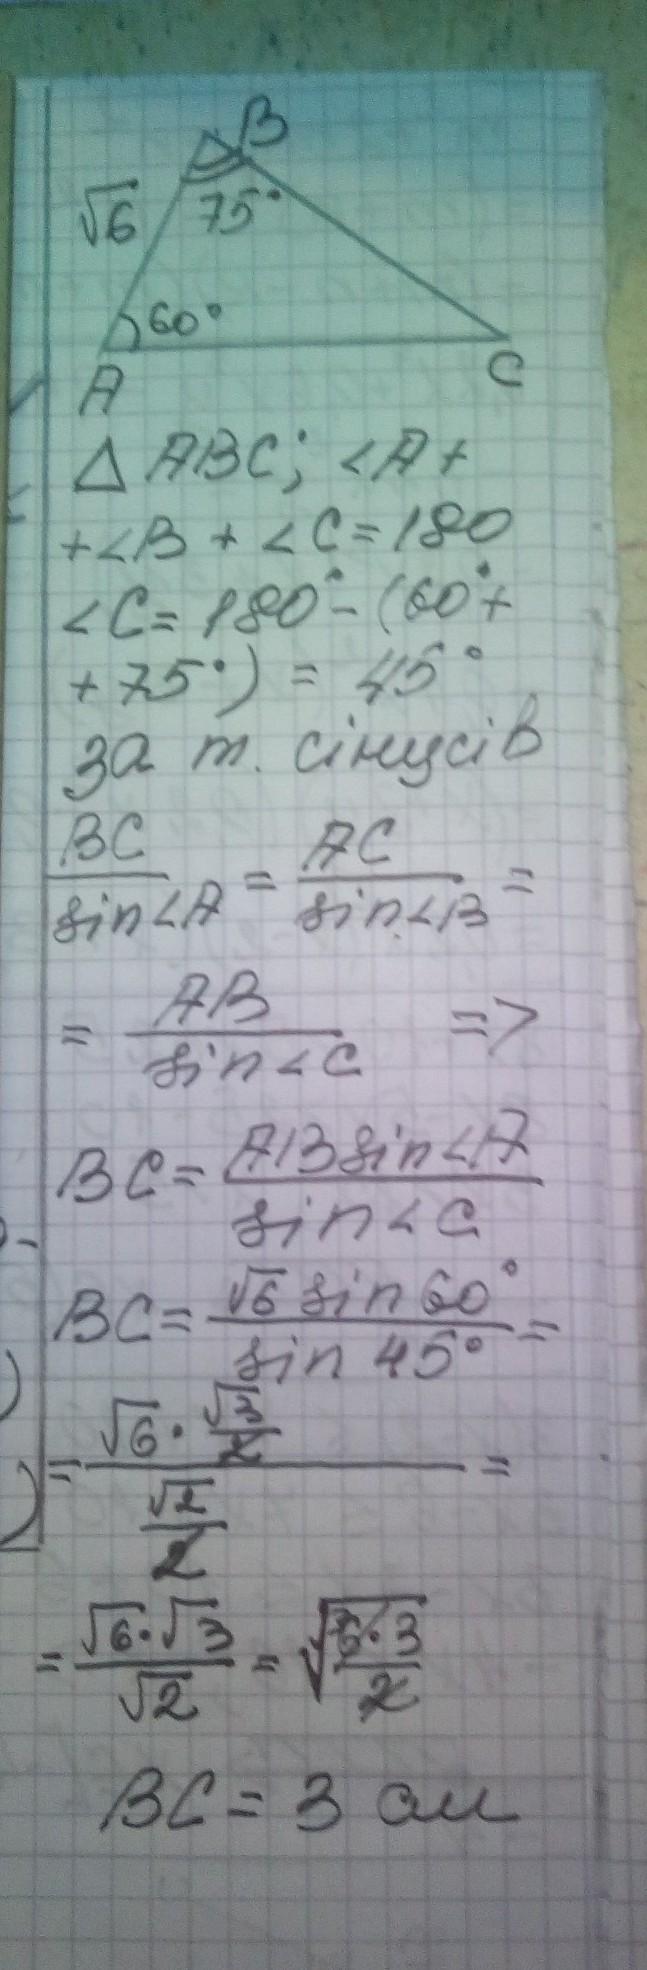 B
√6
75°
60°
A
C
Δ ABC; <A +
+<B + <C = 180
<C = 180° - (60° +
+ 75°) = 45°
За т. сінусів
BC/sin<A = AC/sin<B =
= AB/sin<C =>
BC = AB sin<A/sin<C
BC = √6 sin 60°/sin 45° =
= (√6 · √3/2)/(√2/2) =
= √6·√3/√2 = √(6·3/2)
BC = 3 см